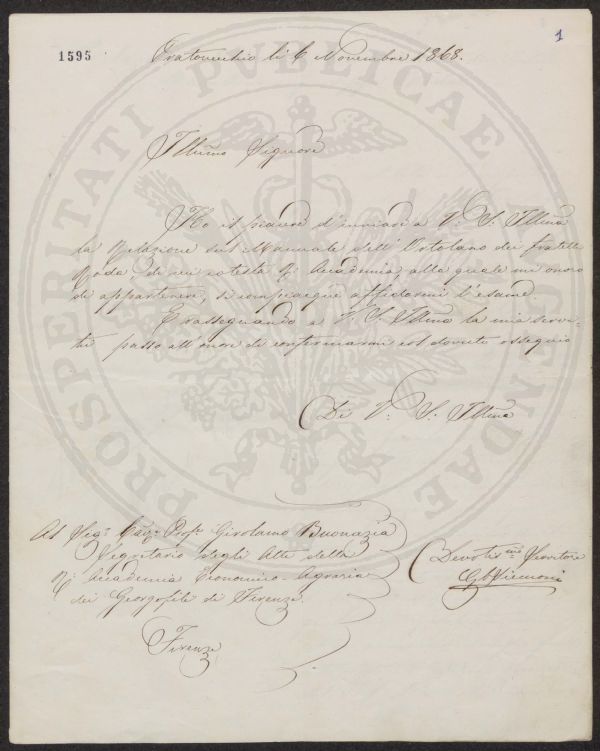 1595
1
Pratovecchio li 6 Novembre 1868.
Illmo Signore
Ho il piacere d'inviare a V. S. Illma
la Relazione sul Manuale dell'Ortolano dei fratelli
Roda di cui cotesta R. Accademia, alla quale mi onoro
di appartenere, si compiacque affidarmi l'esame.
Erassegnando a V. S. Illma la mia servi-
tù passo all'onore di confermarmi col dovuto ossequio
Di V. S. Illma
Al Sigr. Cav. Profr. Girolamo Buonazia
Segretario degli Atti della
R. Accademia Economico-Agraria
dei Georgofili di Firenze.
Firenze
Devotis.mo Servitore
Gb Siemoni
PROSPERITATI PUBLICAE AUGENDAE